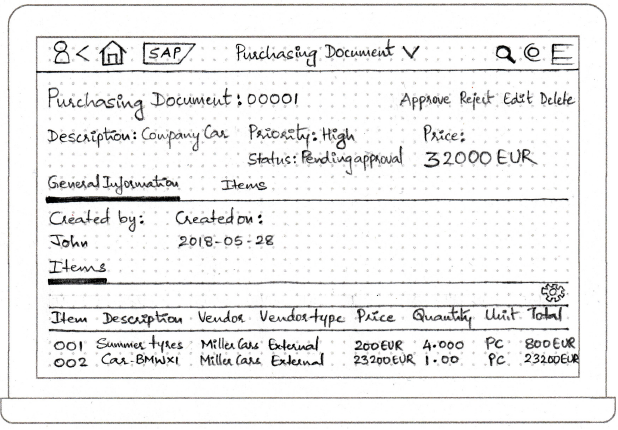 SAP Purchasing Document
Purchasing Document: 00001 Approve Reject Edit Delete
Description: Company Car Priority: High Price:
Status: Pending approval 32000 EUR
General Information Items
Created by: Created on:
John 2018-05-28
Items
Item Description Vendor Vendor type Price Quantity Unit Total
001 Summer tyres Miller Cars External 200EUR 4.000 PC 800EUR
002 Car-BMWX1 Miller Cars External 23200EUR 1.00 PC 23200EUR